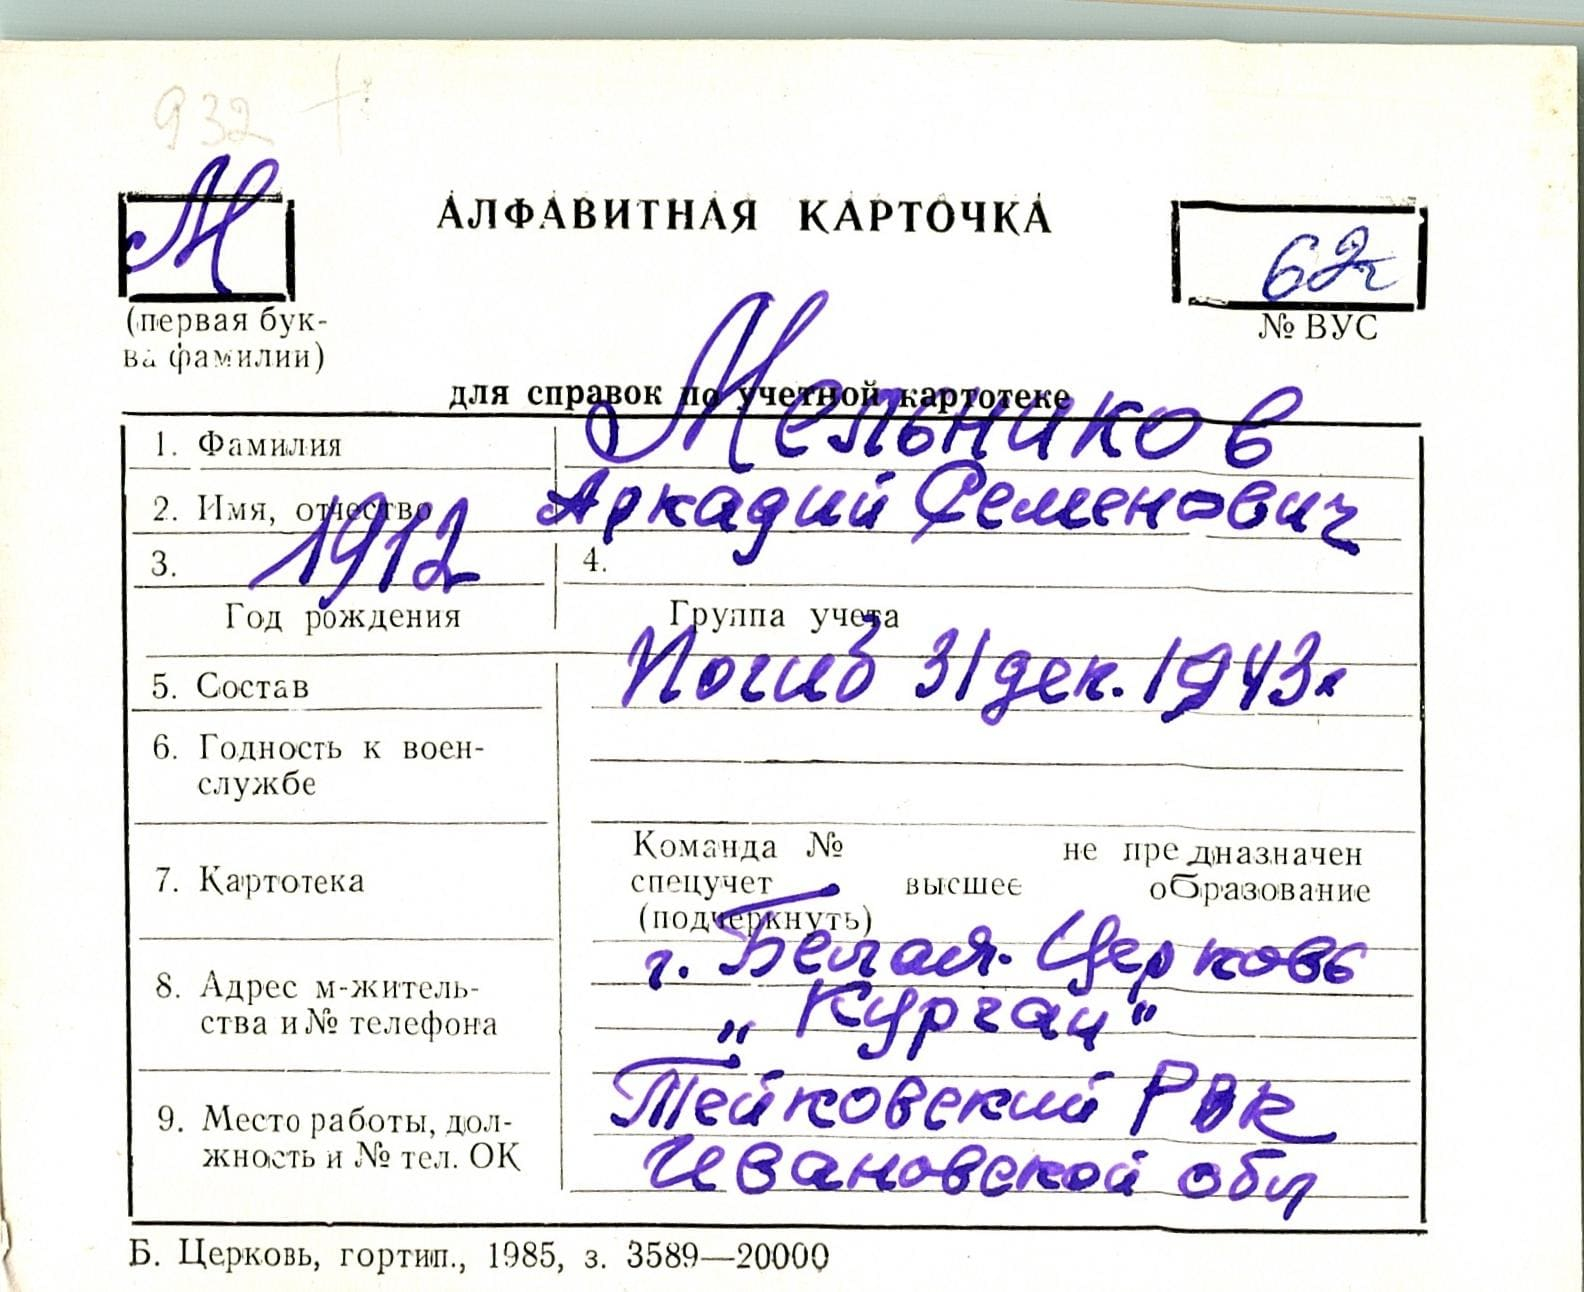 932 +
М
АЛФАВИТНАЯ КАРТОЧКА
62
(первая бук-
ва фамилии)
№ ВУС
для справок по учетной картотеке
1. Фамилия Мельников
2. Имя, отчество Аркадий Семенович
3. 1912 4.
Год рождения Группа учета
5. Состав Погиб 31 дек. 1943г
6. Годность к воен-
службе
Команда № не предназначен
7. Картотека спецучет высшее образование
(подчеркнуть)
г. Белая-Церковь
8. Адрес м-житель-
ства и № телефона
„Курган"
Тейковский РВК
9. Место работы, дол-
жность и № тел. ОК
Ивановской обл
Б. Церковь, гортип., 1985, з. 3589—20000